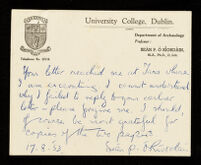 University College, Dublin.
Department of Archaeology
Professor:
SEÁN P. Ó RÍORDÁIN,
M.A., Ph.D., D.Litt.
Telephone No.
Your letter reached me at Tara where
I am excavating. I cannot understand
why I failed to reply to your earlier
letter - please forgive me. I should
of course be most grateful for
copies of the two papers.
17.9.53 Seán P. Ó Ríordáin